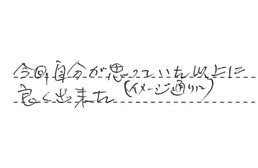 今回自分が思っていた以上に
良く出来た(イメージ通りに)